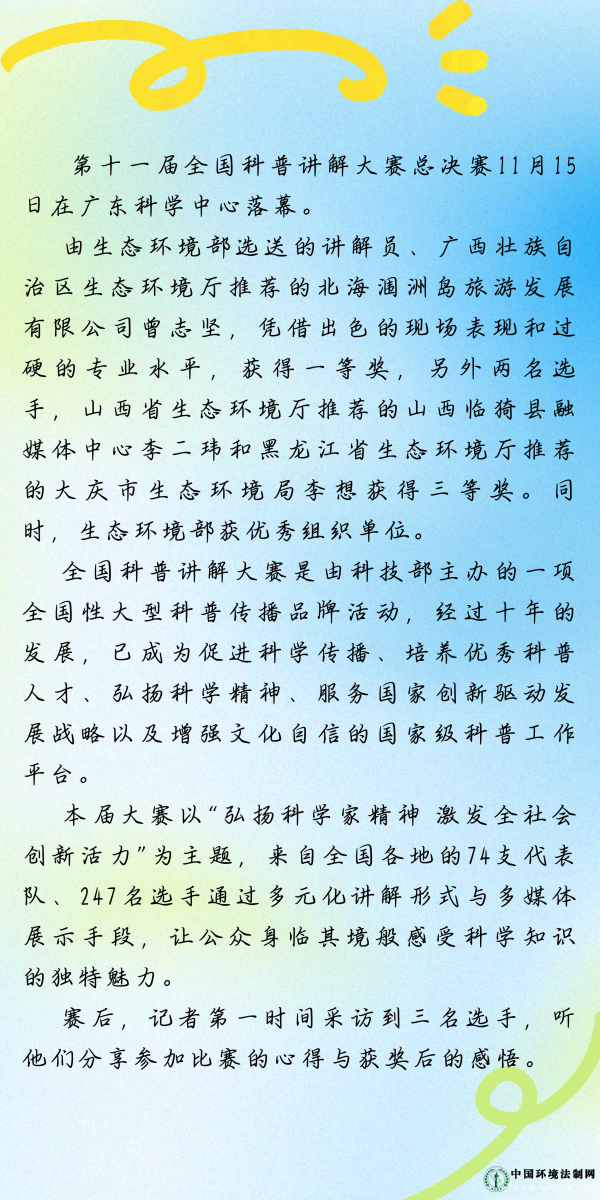 第十一届全国科普讲解大赛总决赛11月15
日在广东科学中心落幕。
由生态环境部选送的讲解员、广西壮族自
治区生态环境厅推荐的北海涠洲岛旅游发展
有限公司曾志坚，凭借出色的现场表现和过
硬的专业水平，获得一等奖，另外两名选
手，山西省生态环境厅推荐的山西临猗县融
媒体中心李二玮和黑龙江省生态环境厅推荐
的大庆市生态环境局李想获得三等奖。同
时，生态环境部获优秀组织单位。
全国科普讲解大赛是由科技部主办的一项
全国性大型科普传播品牌活动，经过十年的
发展，已成为促进科学传播、培养优秀科普
人才、弘扬科学精神、服务国家创新驱动发
展战略以及增强文化自信的国家级科普工作
平台。
本届大赛以“弘扬科学家精神 激发全社会
创新活力”为主题，来自全国各地的74支代表
队、247名选手通过多元化讲解形式与多媒体
展示手段，让公众身临其境般感受科学知识
的独特魅力。
赛后，记者第一时间采访到三名选手，听
他们分享参加比赛的心得与获奖后的感悟。
中国环境法制网